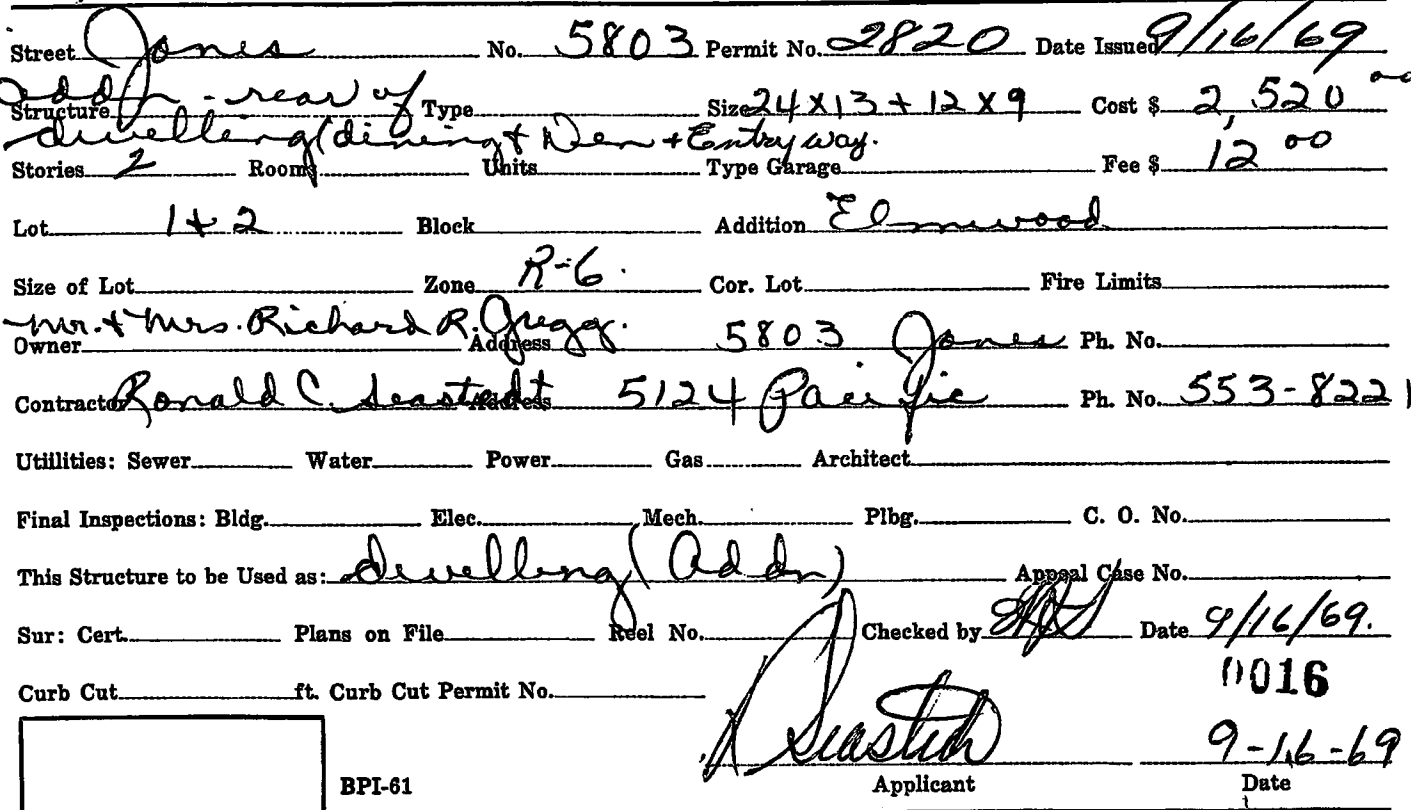 Street Jones No. 5803 Permit No. 2820 Date Issued 9/16/69
Structure addn - rear of Type Size 24 x 13 + 12 x 9 Cost $ 2,520 00
dwelling (dining + Den + Entry way.
Stories 2 Rooms Units Type Garage Fee $ 12 00
Lot 1 + 2 Block Addition Elmwood
Size of Lot Zone R-6. Cor. Lot Fire Limits
Owner Mr. + Mrs. Richard R. Gregg. Address 5803 Jones Ph. No.
Contractor Ronald C. Seastedt Address 5124 Pacific Ph. No. 553-8221
Utilities: Sewer Water Power Gas Architect
Final Inspections: Bldg. Elec. Mech. Plbg. C. O. No.
This Structure to be Used as: dwelling (Addn) Appeal Case No.
Sur: Cert. Plans on File Reel No. Checked by Date 9/16/69.
Curb Cut ft. Curb Cut Permit No. 0016
9-16-69
BPI-61 Applicant Date